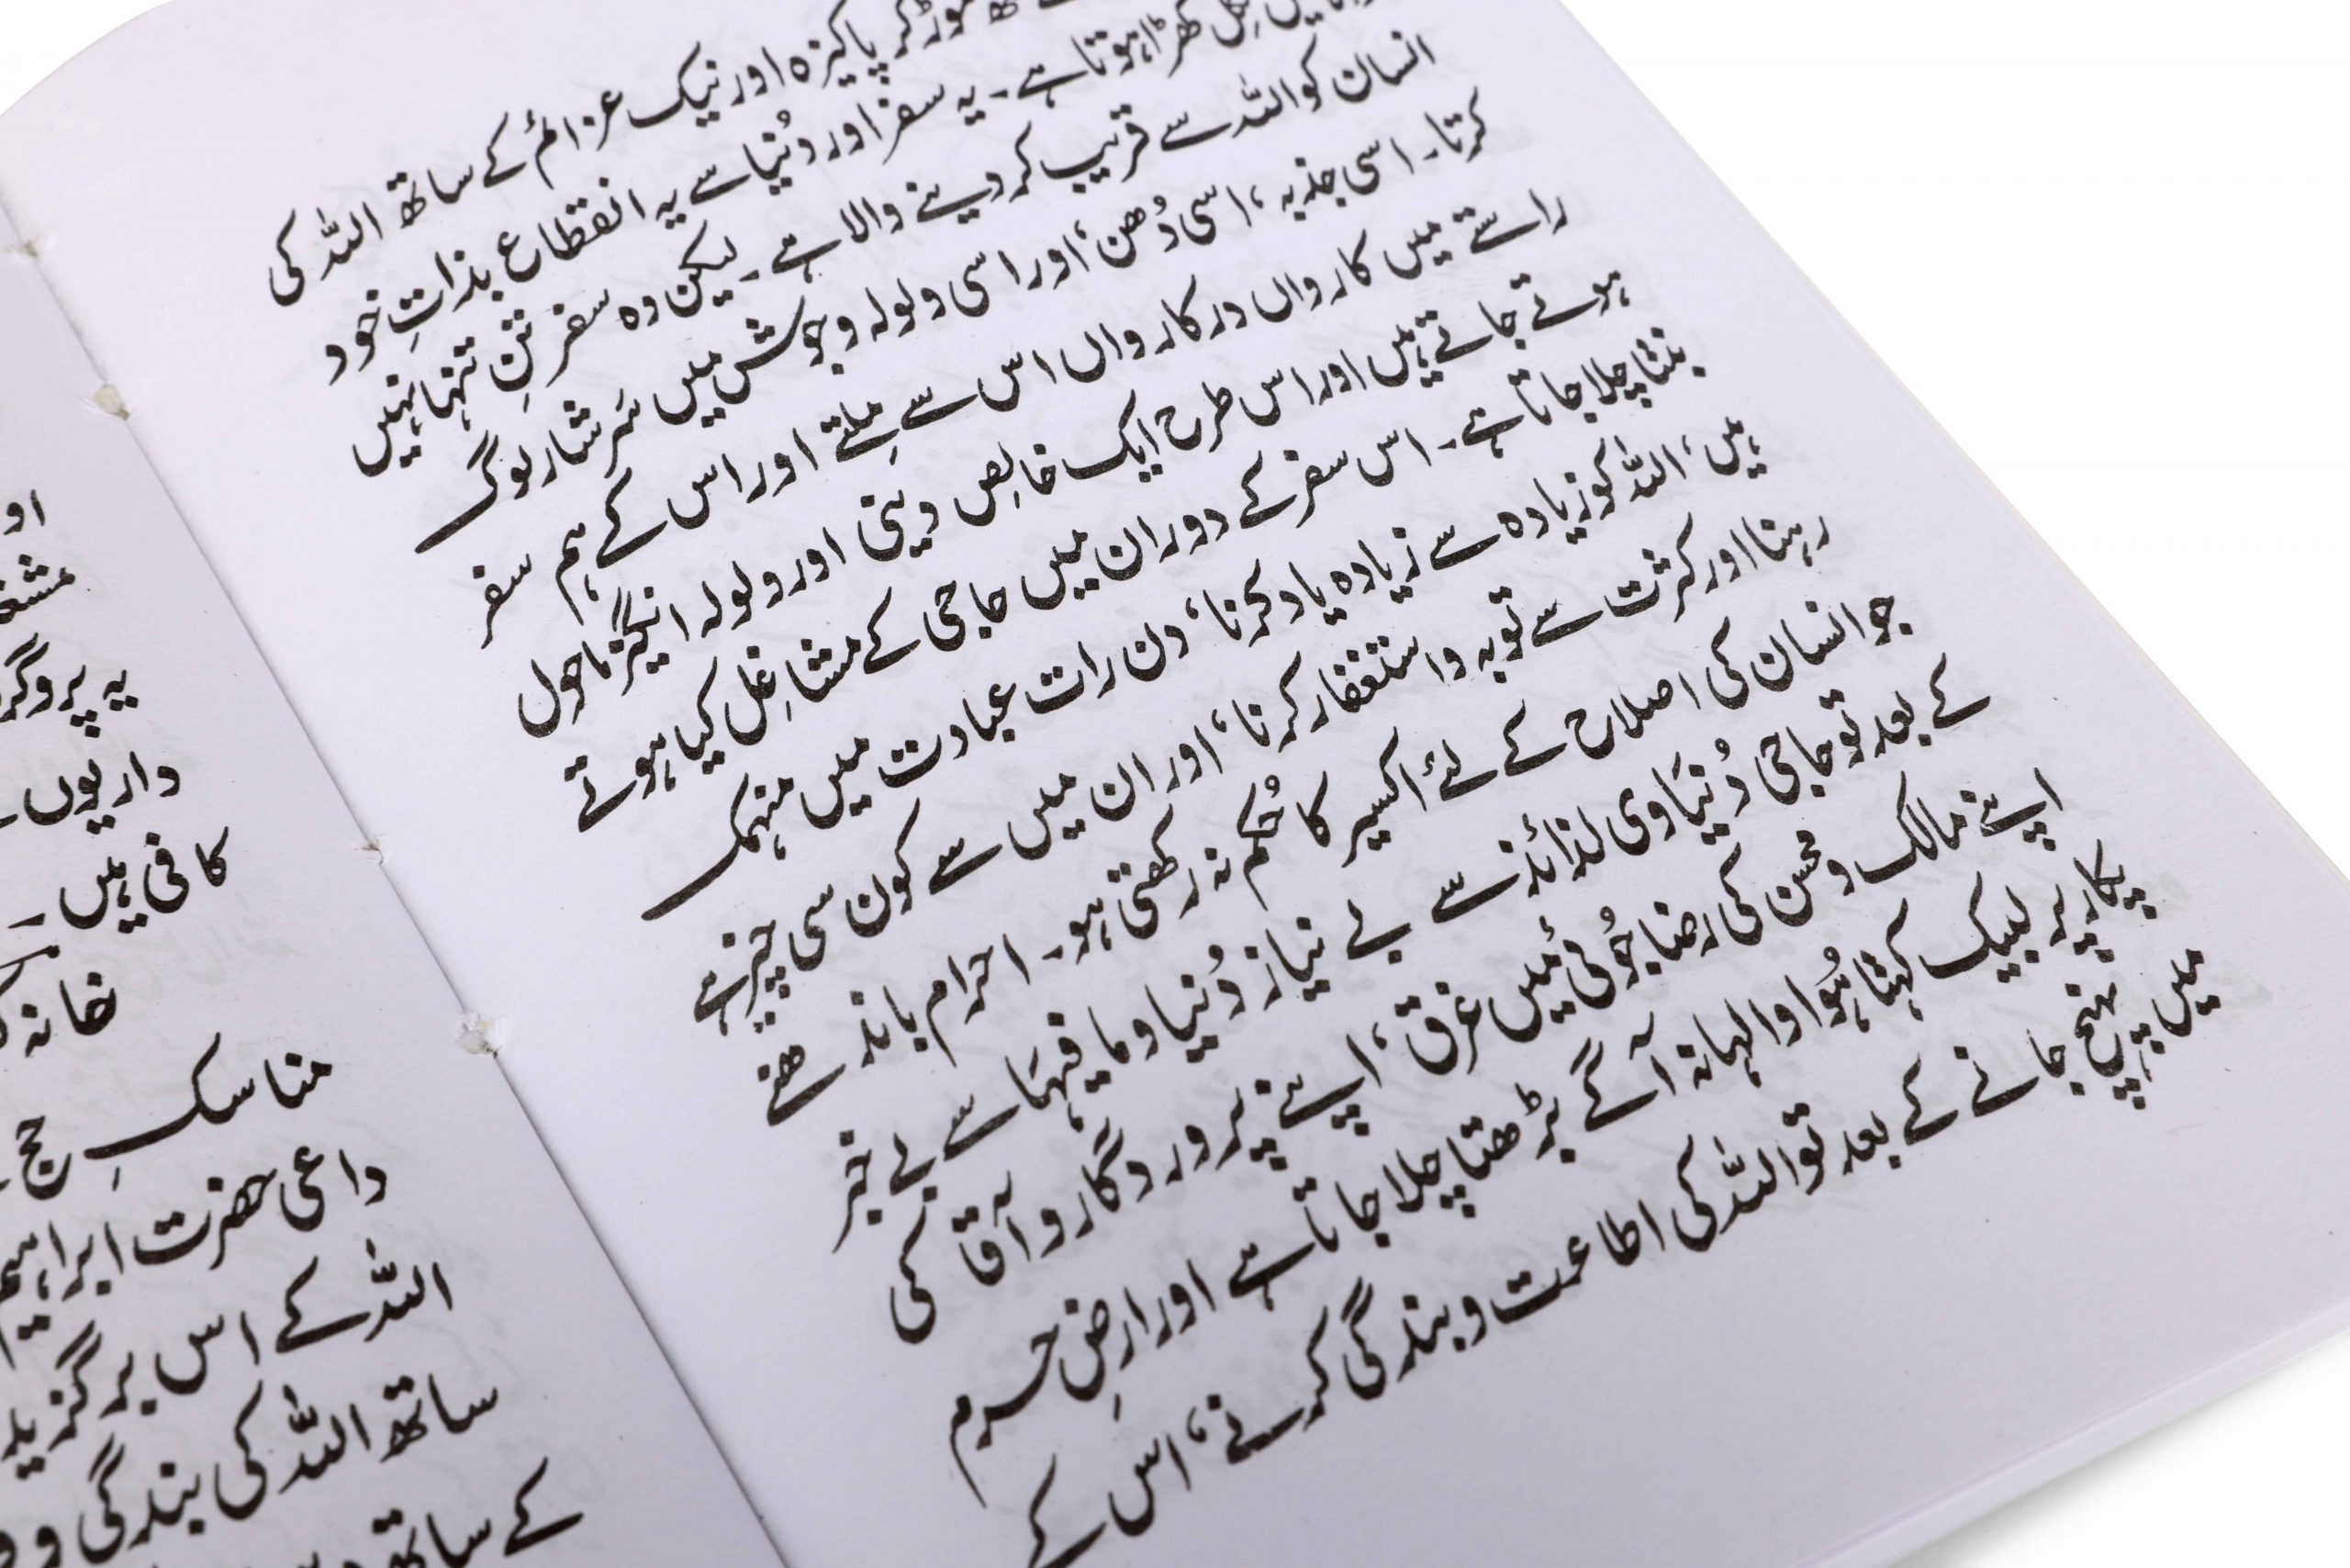 چھوڑ کر پاکیزہ اور نیک عزائم کے ساتھ اللہ کی
نکل کھڑا ہوتا ہے۔ یہ سفر اور دُنیا سے یہ انقطاع بذاتِ خود
انسان کو اللہ سے قریب کر دینے والا ہے۔ لیکن وہ سفر تنِ تنہا نہیں
کرتا۔ اسی جذبہ، اسی دُھن، اور اسی ولولہ و جوش میں سَرشار لوگ
راستے میں کارواں در کارواں اس سے مِلتے اور اس کے ہم سفر
ہوتے جاتے ہیں اور اس طرح ایک خالِص دینی اور ولولہ انگیز ماحول
بنتا چلا جاتا ہے۔ اس سفر کے دوران میں حاجی کے مشاغِل کیا ہوتے
ہیں، اللہ کو زیادہ سے زیادہ یاد کرنا، دن رات عبادت میں منہمک
رہنا اور کثرت سے توبہ و استغفار کرنا، اور ان میں سے کون سی چیز ہے
جو انسان کی اصلاح کے لئے اکسیر کا حُکم نہ رکھتی ہو۔ احرام باندھنے
کے بعد تو حاجی دُنیَاوی لذائذ سے بے نیاز دُنیا و ما فیہَا سے بے خبر
اپنے مالک و محسن کی رضا جُوئی میں غرق، اپنے پرور دگار و آقا کی
پکار پر لبیک کہتا ہُوا والہانہ آگے بڑھتا چلا جاتا ہے اور ارضِ حرم
میں پہنچ جانے کے بعد تو اللہ کی اطاعت و بندگی کرنے، اس کے
او
یہ پروگر
داریوں
کافی ہیں۔
خانہ
مناسکِ حج
داعی حضرت ابراہیم
اللہ کے اس برگزید
ساتھ اللہ کی بندگی و
کے ساتھ